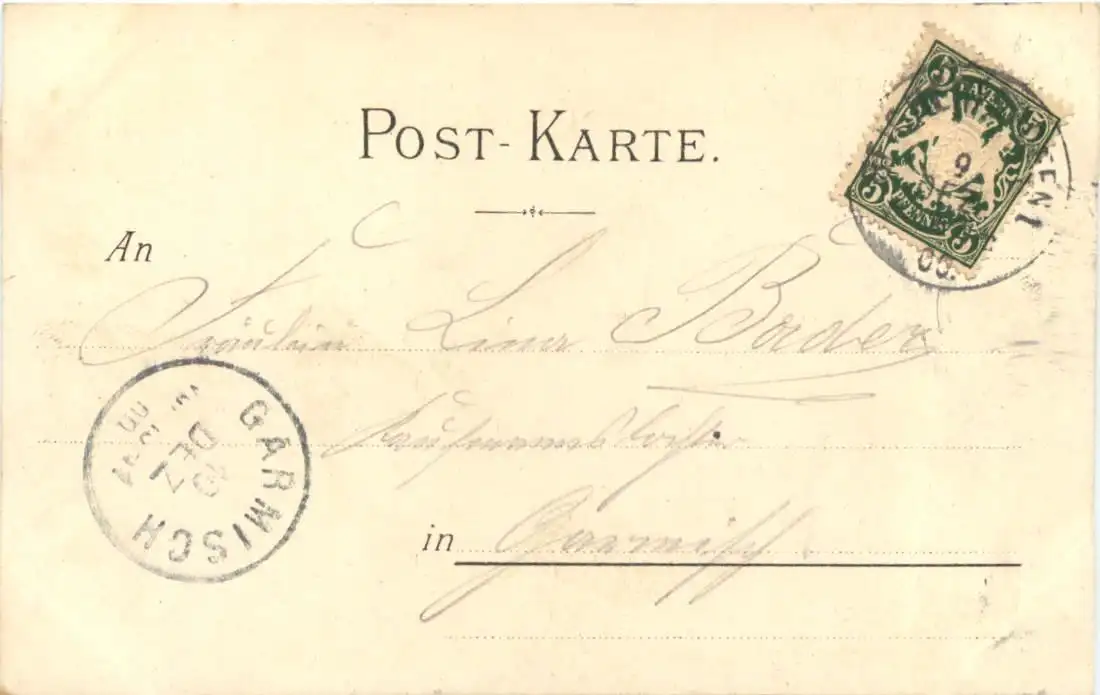 POST-KARTE.
BAYERN
5 5
5 5
PFENNIG
9
DEZ
00.
An
Fräulein Lina Bader
Kaufmannstochter
GARMISCH
10
DEZ
in Garmisch.